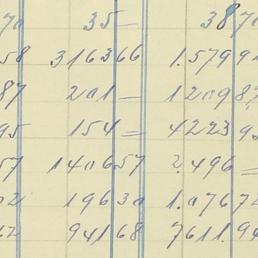 70 35 — 3870
58 3163 66 1.579 9
87 201 — 1209 8
95 154 — 4223 9
57 1406 57 2.496 —
02 196 30 1.076 7
62 941 68 7611.94